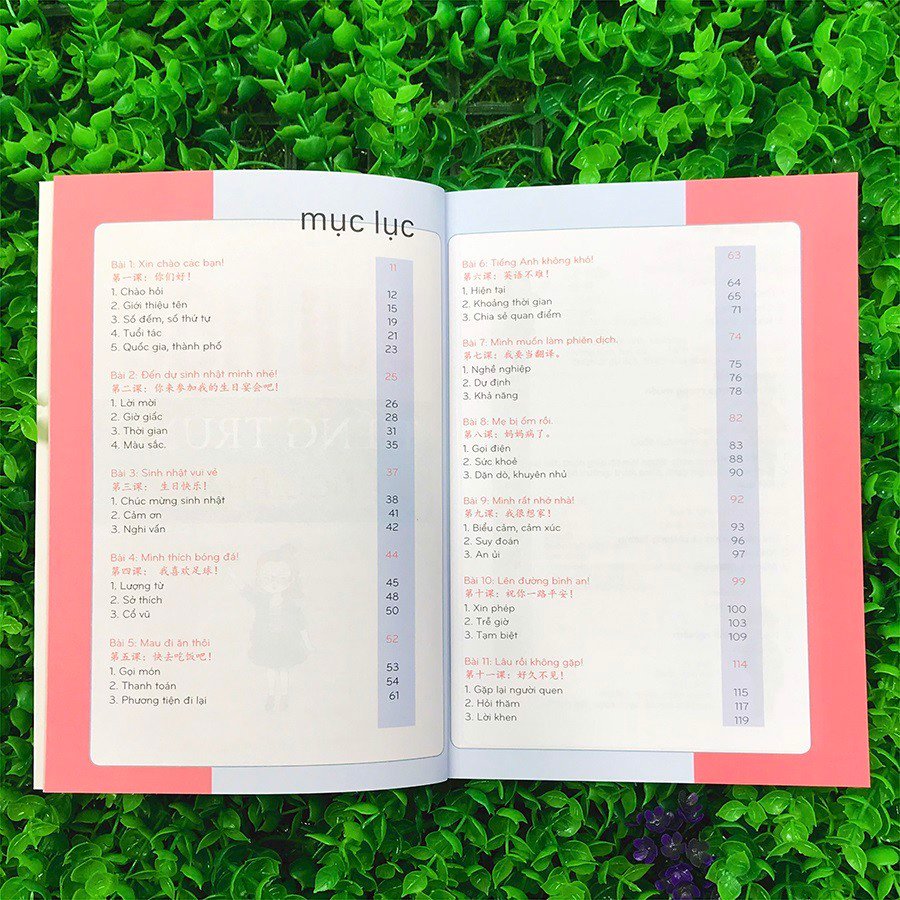 mục lục
Bài 1: Xin chào các bạn! 11
第一课：你们好！
1. Chào hỏi 12
2. Giới thiệu tên 15
3. Số đếm, số thứ tự 19
4. Tuổi tác 21
5. Quốc gia, thành phố 23
Bài 2: Đến dự sinh nhật mình nhé! 25
第二课：你来参加我的生日宴会吧！
1. Lời mời 26
2. Giờ giấc 28
3. Thời gian 31
4. Màu sắc. 35
Bài 3: Sinh nhật vui vẻ 37
第三课： 生日快乐！
1. Chúc mừng sinh nhật 38
2. Cảm ơn 41
3. Nghi vấn 42
Bài 4: Mình thích bóng đá! 44
第四课： 我喜欢足球！
1. Lượng từ 45
2. Sở thích 48
3. Cổ vũ 50
Bài 5: Mau đi ăn thôi 52
第五课：快去吃饭吧！
1. Gọi món 53
2. Thanh toán 54
3. Phương tiện đi lại 61
Bài 6: Tiếng Anh không khó! 63
第六课：英语不难！
1. Hiện tại 64
2. Khoảng thời gian 65
3. Chia sẻ quan điểm 71
Bài 7: Mình muốn làm phiên dịch. 74
第七课：我要当翻译。
1. Nghề nghiệp 75
2. Dự định 76
3. Khả năng 78
Bài 8: Mẹ bị ốm rồi. 82
第八课：妈妈病了。
1. Gọi điện 83
2. Sức khoẻ 88
3. Dặn dò, khuyên nhủ 90
Bài 9: Mình rất nhớ nhà! 92
第九课：我很想家！
1. Biểu cảm, cảm xúc 93
2. Suy đoán 96
3. An ủi 97
Bài 10: Lên đường bình an! 99
第十课：祝你一路平安！
1. Xin phép 100
2. Trễ giờ 103
3. Tạm biệt 109
Bài 11: Lâu rồi không gặp! 114
第十一课：好久不见！
1. Gặp lại người quen 115
2. Hỏi thăm 117
3. Lời khen 119